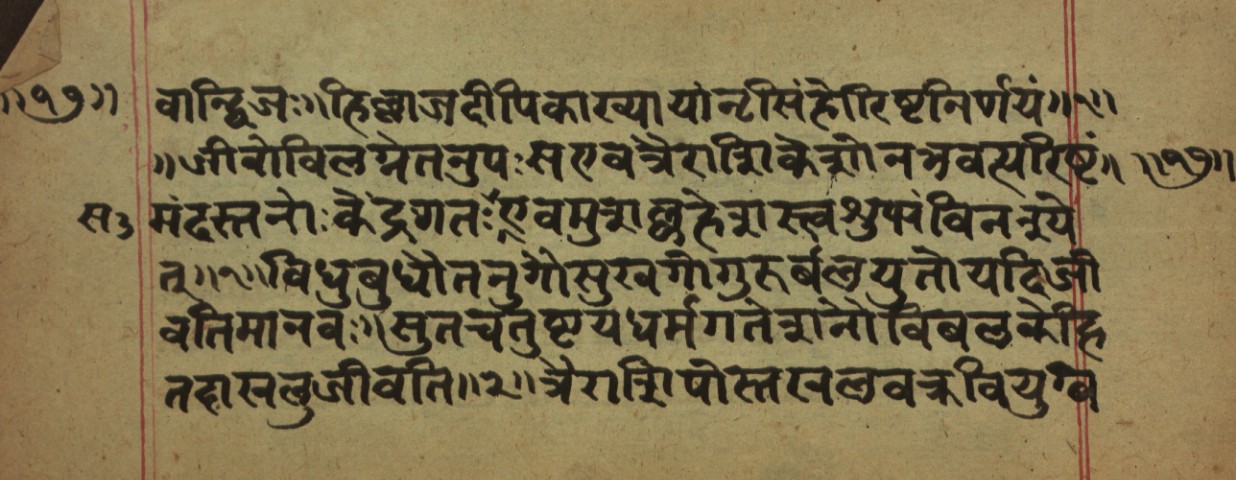 ॥१७॥ वान्द्विजः॥हिल्लाजदीपिकाख्यायांनृसिंहोरिष्टनिर्णयं॥१॥
॥जीवोविलग्नेतनुपःसएवत्रैराशिकेशोनभवत्यरिष्टं॥ ॥१७॥
स३ मंदस्तनोःकेंद्रगतःएवमुशल्लहेशस्त्वशुभंविननूये
त्॥१॥विधुबुधौतनुगौसुखगौगुरुर्बलयुतोयदिजी
वतिमानवः॥सुतचतुष्टयधर्मगतेशनोविबलकेहि
तदाखलुजीवति॥२॥त्रैराशिपोस्तखलवक्रवियुग्व